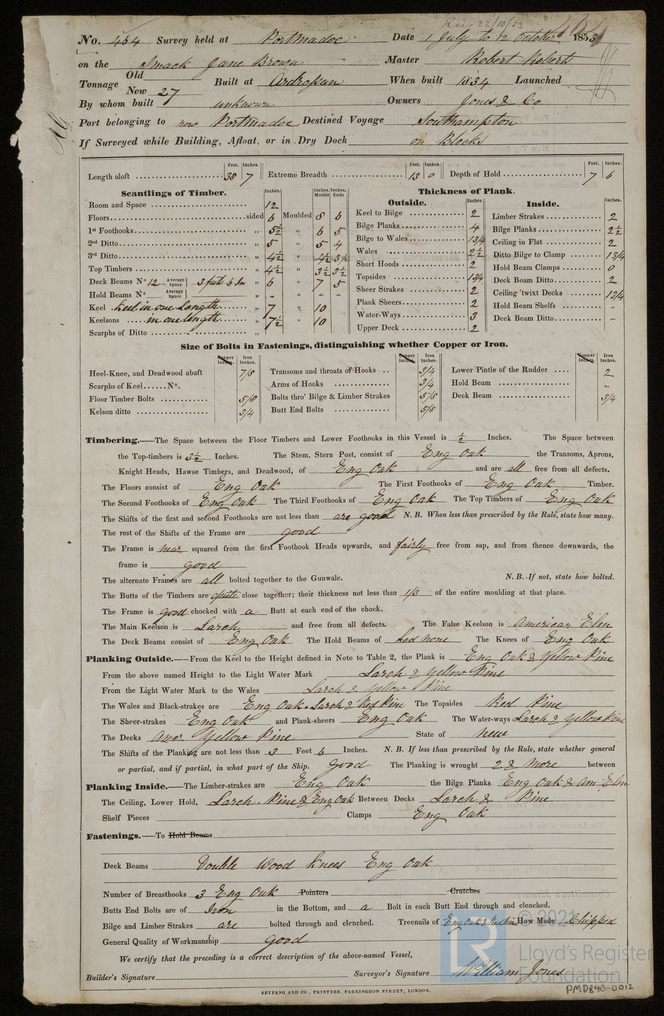 Rec 22/10/53
No. 464 Survey held at Portmadoc Date 1 July to 12 October 1853
on the Smack Jane Brown Master Robert Roberts
Tonnage Old
New 27 Built at Ardrossan When built 1834 Launched
By whom built unknown Owners Jones & Co
Port belonging to now Portmadoc Destined Voyage Southampton
If Surveyed while Building, Afloat, or in Dry Dock on Blocks
Feet. Inches. Feet. Inches. Feet. Inches.
Length aloft 38 7 Extreme Breadth 13 0 Depth of Hold 7 6
Scantlings of Timber. Thickness of Plank.
Inches. Inches. Middle Inches. Ends Outside. Inches. Inside. Inches.
Room and Space 12
Floors sided 6 Moulded 8 6
1st Foothooks " 5½ " 6 5
2nd Ditto " 5 " 5 4
3rd Ditto " 4½ " 4½ 3¾
Top Timbers " 4½ " 3½ 3½
Deck Beams No 12 Average Space 3 feet 6 In " 6 " 7 5
Hold Beams No – Average Space – " – " – –
Keel Keel in one length " 7 " 10
Keelsons in one length " 7½ " 10
Scarphs of Ditto "
Keel to Bilge 2
Bilge Planks 4
Bilge to Wales 1 3/4
Wales 2½
Short Hoods 2
Topsides 1 3/4
Sheer Strakes 2
Plank Sheers 2
Water-Ways 3
Upper Deck 2
Limber Strakes 2
Bilge Planks 2½
Ceiling in Flat 2
Ditto Bilge to Clamp 1 3/4
Hold Beam Clamps 0
Deck Beam Ditto 2
Ceiling 'twixt Decks 1 3/4
Hold Beam Shelfs –
Deck Beam Ditto –
Size of Bolts in Fastenings, distinguishing whether Copper or Iron.
Copper Inches. Iron Inches. Copper Inches. Iron Inches. Copper Inches. Iron Inches.
Heel-Knee, and Deadwood abaft 7/8
Scarphs of Keel No.
Floor Timber Bolts 5/8
Kelson ditto 3/4
Transoms and throats of Hooks 3/4
Arms of Hooks 3/4
Bolts thro' Bilge & Limber Strakes 5/8
Butt End Bolts 5/8
Lower Pintle of the Rudder 2
Hold Beam –
Deck Beam 3/4
Timbering.—The Space between the Floor Timbers and Lower Foothooks in this Vessel is ½ Inches. The Space between
the Top-timbers is 3½ Inches. The Stem, Stern Post, consist of Eng Oak the Transoms, Aprons,
Knight Heads, Hawse Timbers, and Deadwood, of Eng Oak and are all free from all defects.
The Floors consist of Eng Oak The First Foothooks of Eng Oak Timber.
The Second Foothooks of Eng Oak The Third Foothooks of Eng Oak The Top Timbers of Eng Oak
The Shifts of the first and second Foothooks are not less than are good N.B. When less than prescribed by the Rule, state how many.
The rest of the Shifts of the Frame are good
The Frame is near squared from the first Foothook Heads upwards, and fairly free from sap, and from thence downwards, the
frame is good
The alternate Frames are all bolted together to the Gunwale. N.B. If not, state how bolted.
The Butts of the Timbers are close together; their thickness not less than 1/3 of the entire moulding at that place.
The Frame is good chocked with a Butt at each end of the chock.
The Main Keelson is Larch and free from all defects. The False Keelson is American Elm
The Deck Beams consist of Eng Oak The Hold Beams of has none The Knees of Eng Oak
Planking Outside.—From the Keel to the Height defined in Note to Table 2, the Plank is Eng Oak & Yellow Pine
From the above named Height to the Light Water Mark Larch & Yellow Pine
From the Light Water Mark to the Wales Larch & Yellow Pine
The Wales and Black-strakes are Eng Oak Larch & Red Pine The Topsides Red Pine
The Sheer-strakes Eng Oak and Plank-sheers Eng Oak The Water-ways Larch & Yellow Pine
The Decks Amer Yellow Pine State of new
The Shifts of the Planking are not less than 3 Feet 6 Inches. N.B. If less than prescribed by the Rule, state whether general
or partial, and if partial, in what part of the Ship. Good The Planking is wrought 2 & More between
Planking Inside.—The Limber-strakes are Eng Oak the Bilge Planks Eng Oak & Am Elm
The Ceiling, Lower Hold, Larch Pine & Eng Oak Between Decks Larch & Pine
Shelf Pieces Clamps Eng Oak
Fastenings.—To Hold Beams
Deck Beams Double Wood Knees Eng Oak
Number of Breasthooks 3 Eng Oak Pointers Crutches
Butts End Bolts are of Iron in the Bottom, and a Bolt in each Butt End through and clenched.
Bilge and Limber Strakes are bolted through and clenched. Treenails of Eng Oak & Red Pine How Made Chipped
General Quality of Workmanship good
We certify that the preceding is a correct description of the above-named Vessel,
Builder's Signature Surveyor's Signature William Jones
SEYFANG AND CO., PRINTERS, FARRINGDON STREET, LONDON.
© 2021
LR Lloyd's Register
Foundation
PMD890-0012